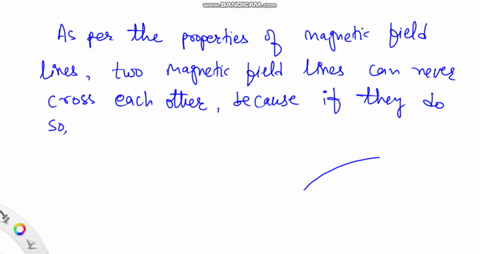 www.BANDICAM.com
As per the properties of magnetic field
lines, two magnetic field lines can never
cross each other, because if they do
so,